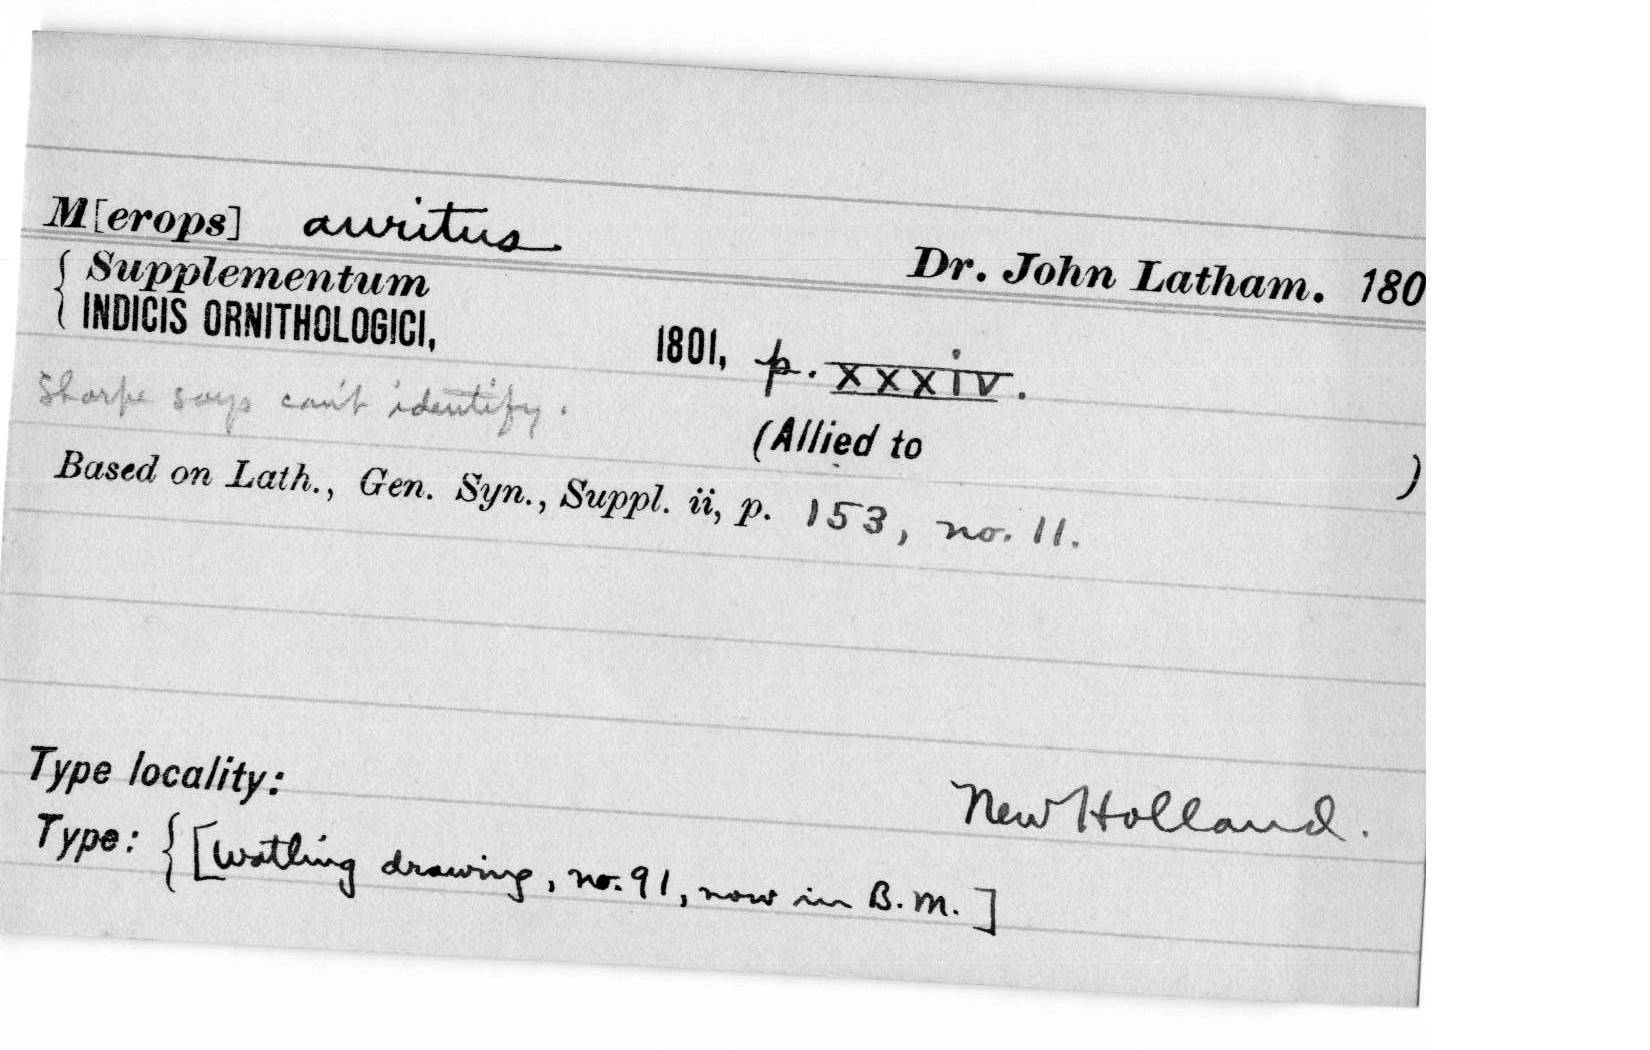 M[erops] auritus
Dr. John Latham. 180
{ Supplementum
INDICIS ORNITHOLOGICI,
1801, p. xxxiv.
Sharpe says can't identify.
(Allied to )
Based on Lath., Gen. Syn., Suppl. ii, p. 153, no. 11.
Type locality: New Holland.
Type: { [Watling drawing, no. 91, now in B.M.]